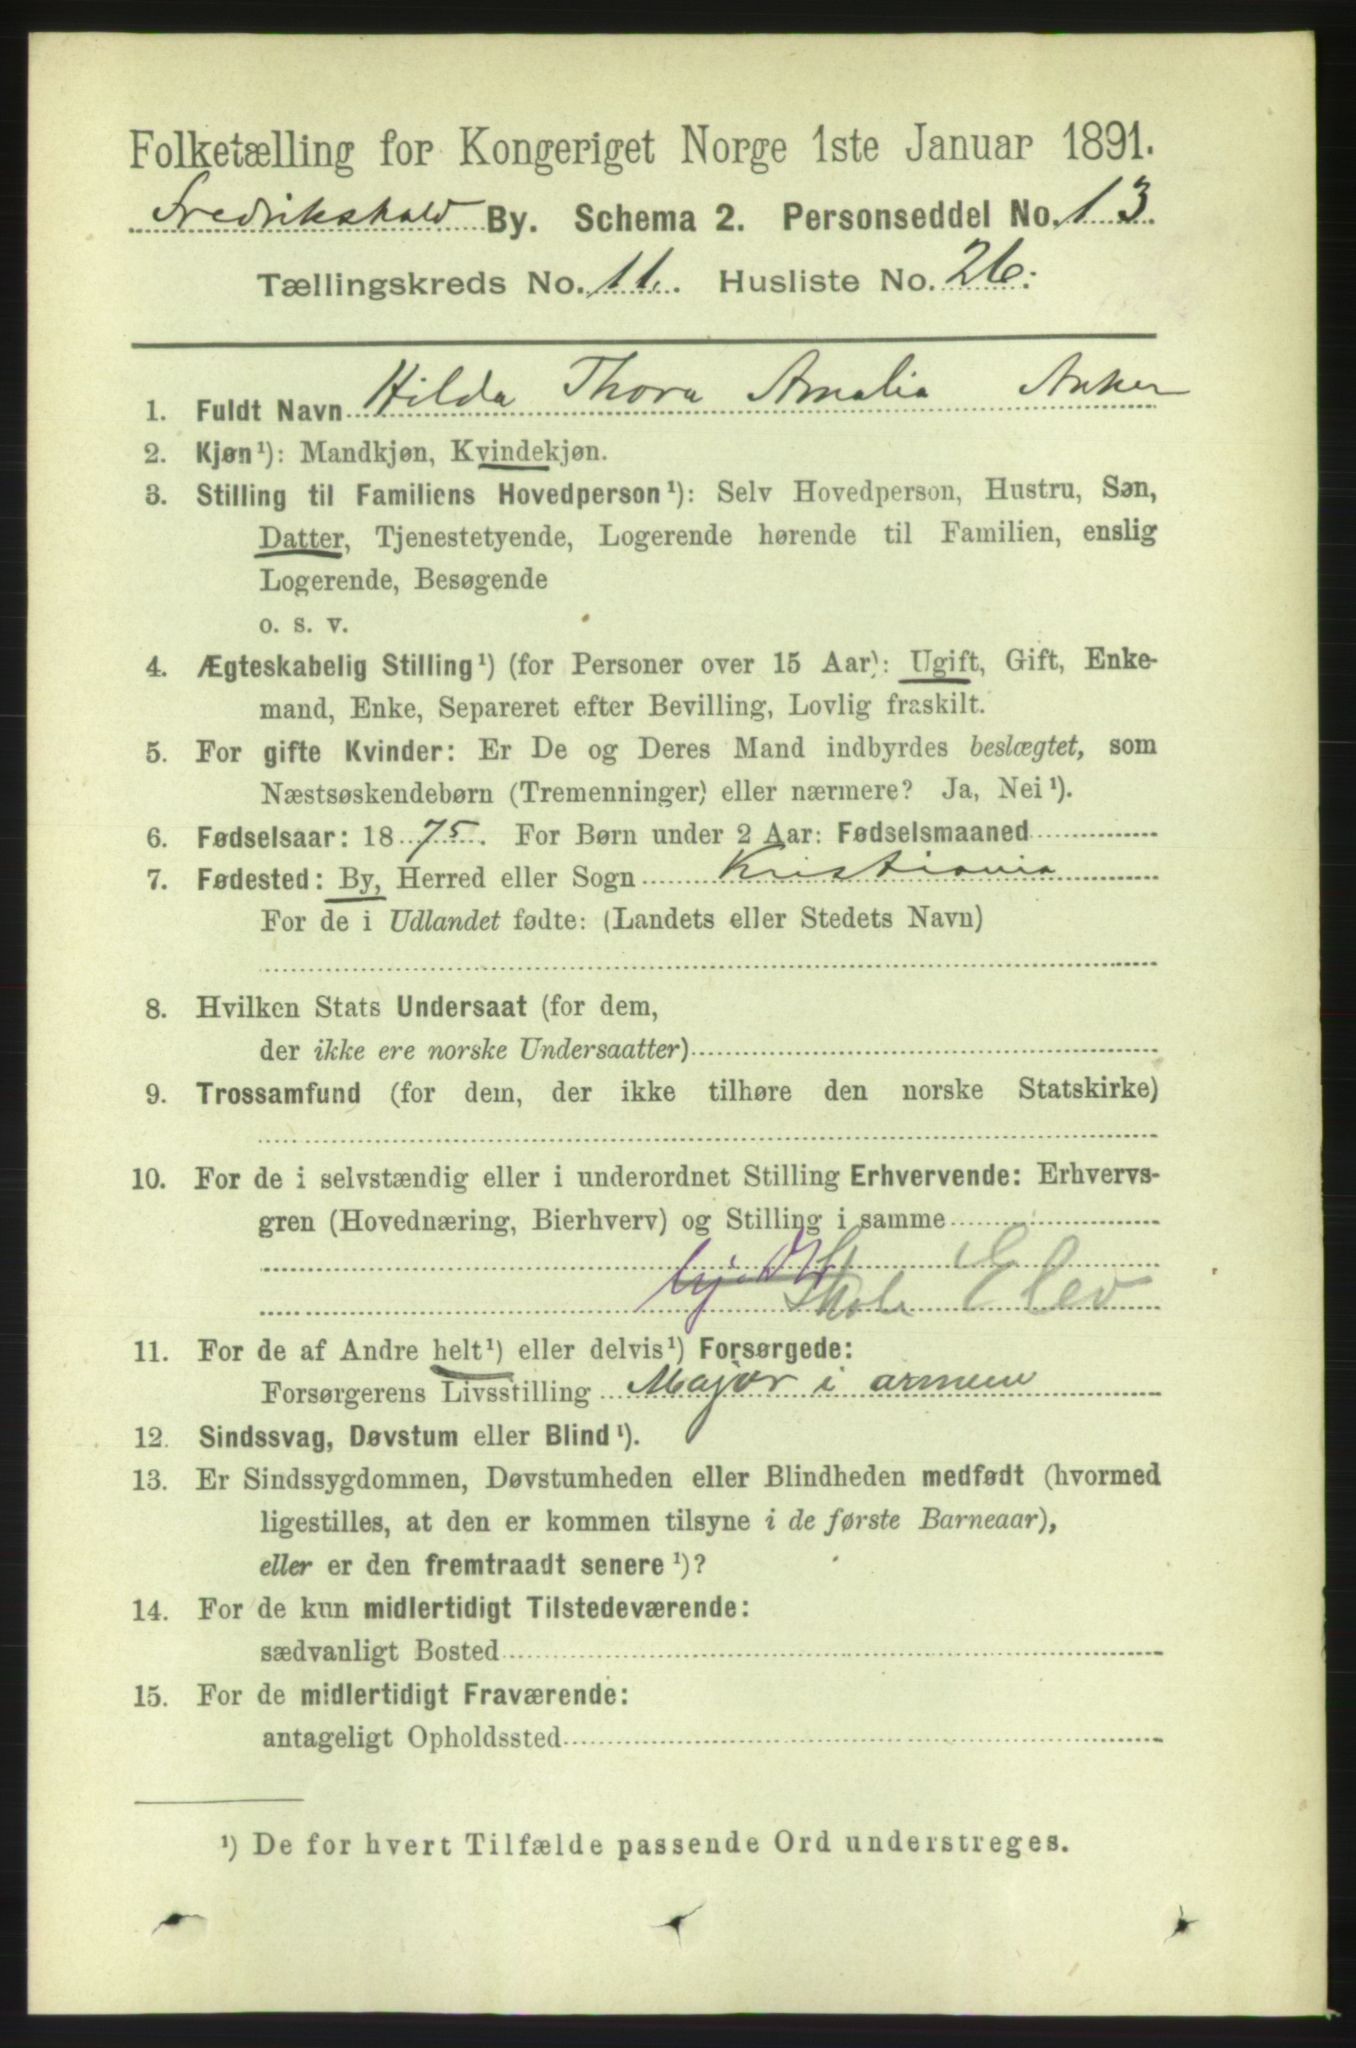 Folketælling for Kongeriget Norge 1ste Januar 1891.
Fredrikshald By. Schema 2. Personseddel No. 13
Tællingskreds No. 11. Husliste No. 26.
1. Fuldt Navn Hilda Thora Amalia Anker
2. Kjøn¹): Mandkjøn, Kvindekjøn.
3. Stilling til Familiens Hovedperson¹): Selv Hovedperson, Hustru, Søn,
Datter, Tjenestetyende, Logerende hørende til Familien, enslig
Logerende, Besøgende
o. s. v.
4. Ægteskabelig Stilling¹) (for Personer over 15 Aar): Ugift, Gift, Enke-
mand, Enke, Separeret efter Bevilling, Lovlig fraskilt.
5. For gifte Kvinder: Er De og Deres Mand indbyrdes beslægtet, som
Næstsøskendebørn (Tremenninger) eller nærmere? Ja, Nei¹).
6. Fødselsaar: 1875. For Børn under 2 Aar: Fødselsmaaned
7. Fødested: By, Herred eller Sogn Kristiania
For de i Udlandet fødte: (Landets eller Stedets Navn)
8. Hvilken Stats Undersaat (for dem,
der ikke ere norske Undersaatter)
9. Trossamfund (for dem, der ikke tilhøre den norske Statskirke)
10. For de i selvstændig eller i underordnet Stilling Erhvervende: Erhvervs-
gren (Hovednæring, Bierhverv) og Stilling i samme
Skole Elev
11. For de af Andre helt¹) eller delvis¹) Forsørgede:
Forsørgerens Livsstilling Major i armeen
12. Sindssvag, Døvstum eller Blind¹).
13. Er Sindssygdommen, Døvstumheden eller Blindheden medfødt (hvormed
ligestilles, at den er kommen tilsyne i de første Barneaar),
eller er den fremtraadt senere¹)?
14. For de kun midlertidigt Tilstedeværende:
sædvanligt Bosted
15. For de midlertidigt Fraværende:
antageligt Opholdssted
¹) De for hvert Tilfælde passende Ord understreges.